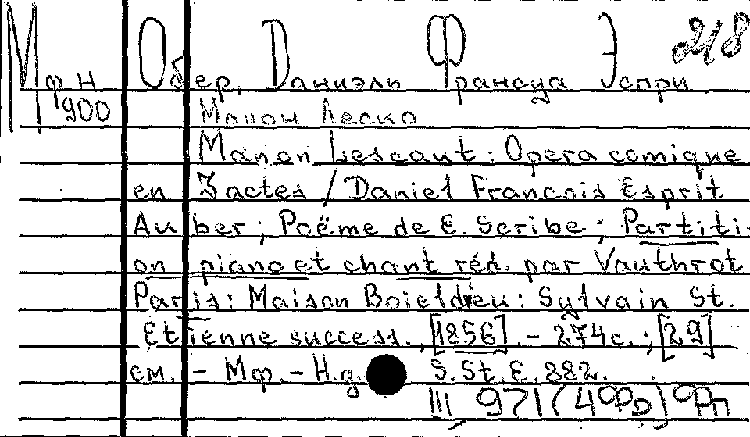 218
Мф Н Обер, Даниэль Франсуа Эспри
900 Манон Леско
Manon Lescaut: Opera comique
en 3 actes / Daniel Francois Esprit
Auber; Poëme de E. Scribe; Partiti-
on piano et chant réd. par Vauthrot
Paris: Maison Boieldieu: Sylvain St.
Etienne success., [1856]. - 274 с.; [29]
см. - Мф. - Н.д. S.St.E.882.
III 971 (4Фр) Фп